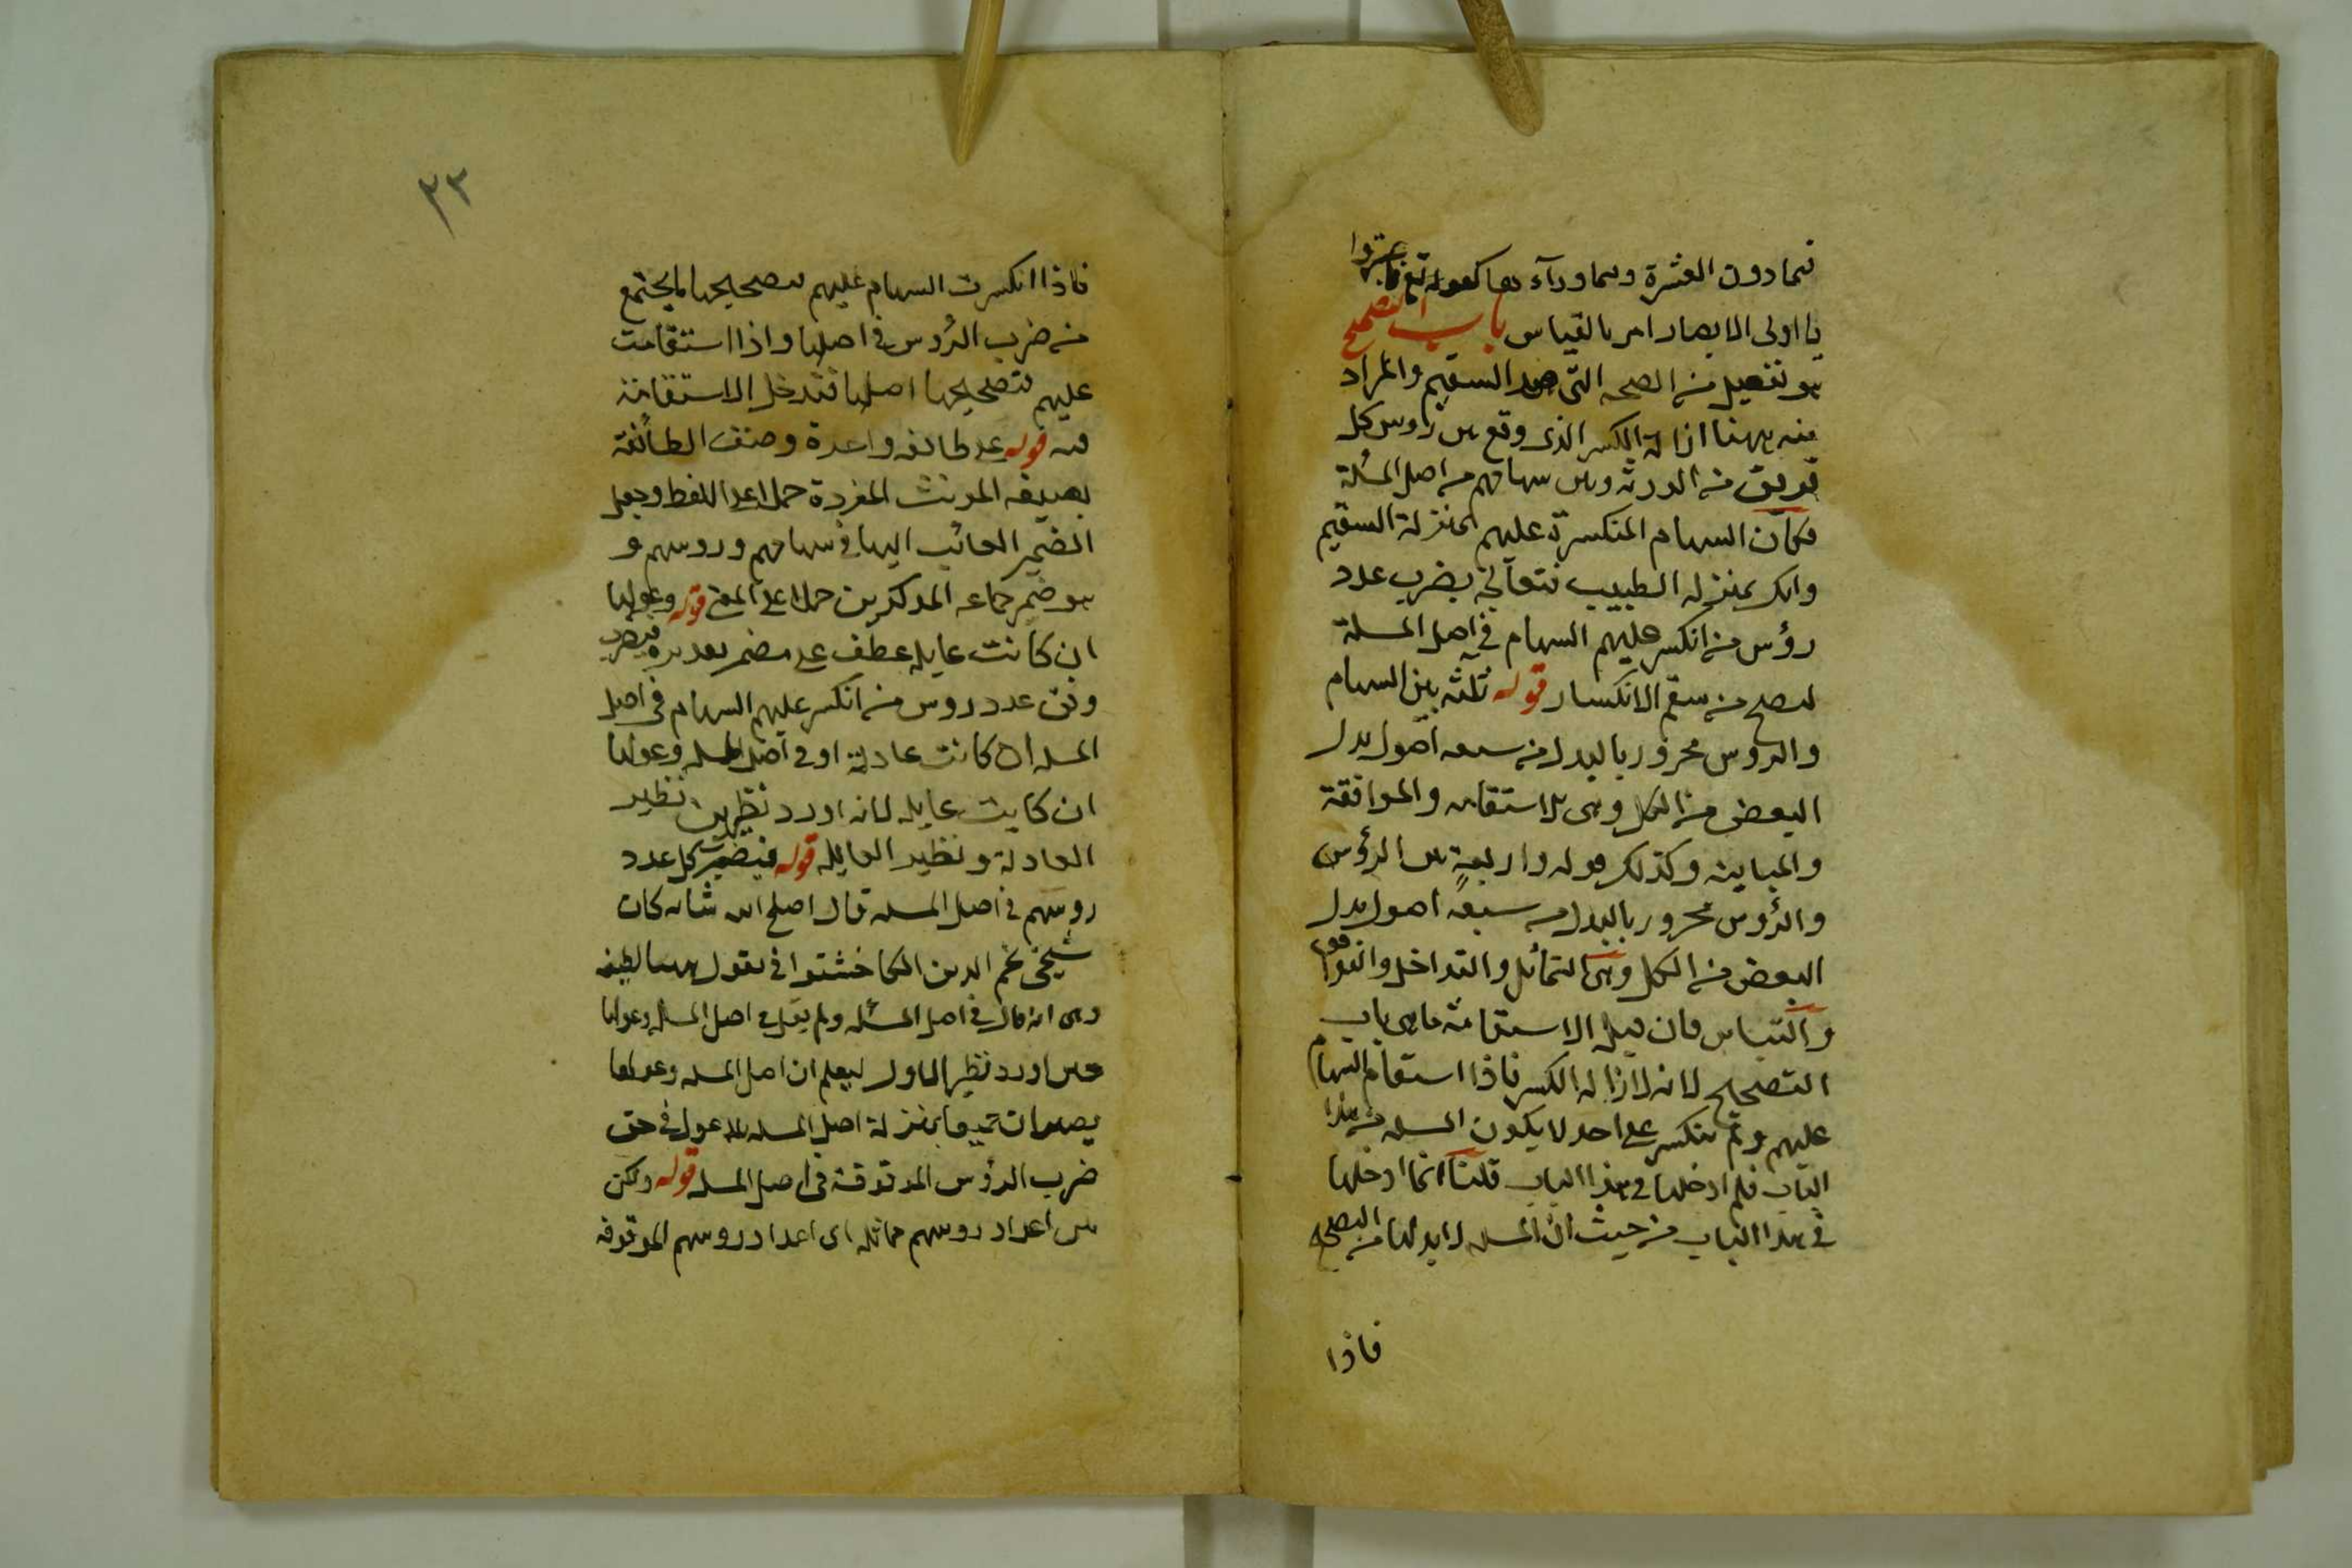 فيما دون العشرة وفيما وراء ها كقوله تع فاعتبروا
يا اولى الابصار امر بالقياس باب التصحيح
هو تفعيل من الصحه التى ضد السقيم والمراد
منه ههنا ازالة الكسر الذى وقع بين رؤس كل
فريق من الورثه وبين سهامهم من اصل المسئلة
فكان السهام المنكسرة عليهم بمنزلة السقيم
وانك بمنزله الطبيب فتعالج بضرب عدد
رؤس من انكسر عليهم السهام في اصل المسلة
لتصح من سقم الانكسار قوله ثلثه بين السهام
والروس مجرور بالبدل من سبعه اصول بدل
البعض من الكل وهى الاستقامه والموافقة
والمباينه وكذلك قوله واربعة بين الرؤس
والرؤس مجرور بالبدل من سبعة اصول بدل
البعض من الكل وهى التماثل والتداخل والتوافق
والتباين فان قيل الاستقامة ما هى باب
التصحيح لانه لازاله الكسر فاذا استقام السهام
عليهم ولم ينكسر على احد لا يكون المسله من هذا
الباب فلم ادخلها في هذا الباب قلنا انما ادخلها
في هذا الباب من حيث ان المسله لا بد لها من التصحيح
فاذا
٢٣
فاذا انكسرت السهام عليهم فتصحيحها ما يجتمع
من ضرب الرؤس في اصلها واذا استقامت
عليهم فتصحيحها اصلها فتدخل الاستقامة
فيه قوله على طائفه واحدة وصف الطائفة
بصيغه المونث المفردة حملا على اللفظ وجعل
الضمير العائد اليها في سهامهم وروسهم و
هو ضمير جماعه المذكرين حملا على المعنى قوله وعولها
ان كانت عايله عطف على مضمر تقديره فيضرب
وفق عدد روس من انكسر عليهم السهام في اصل
المسله ان كانت عادلة او في اصل المسله وعولها
ان كانت عايله لانه اورد نظيرين نظير
العادلة ونظير العايله قوله فيضرب كل عدد
روسهم في اصل المسله قال اصلح الله شانه كان
شيخى نجم الدين الكاخشتوانى يقول ههنا لطيفه
وهى انه قال في اصل المسئله ولم يقل في اصل المسله وعولها
حين اورد نظير الاول ليعلم ان اصل المسله وعولها
يصيران جميعا بمنزلة اصل المسله بلا عول في حق
ضرب الرؤس الموقوفة في اصل المسله قوله ولكن
بين اعداد روسهم مماثله اى اعداد روسهم الموقوفه